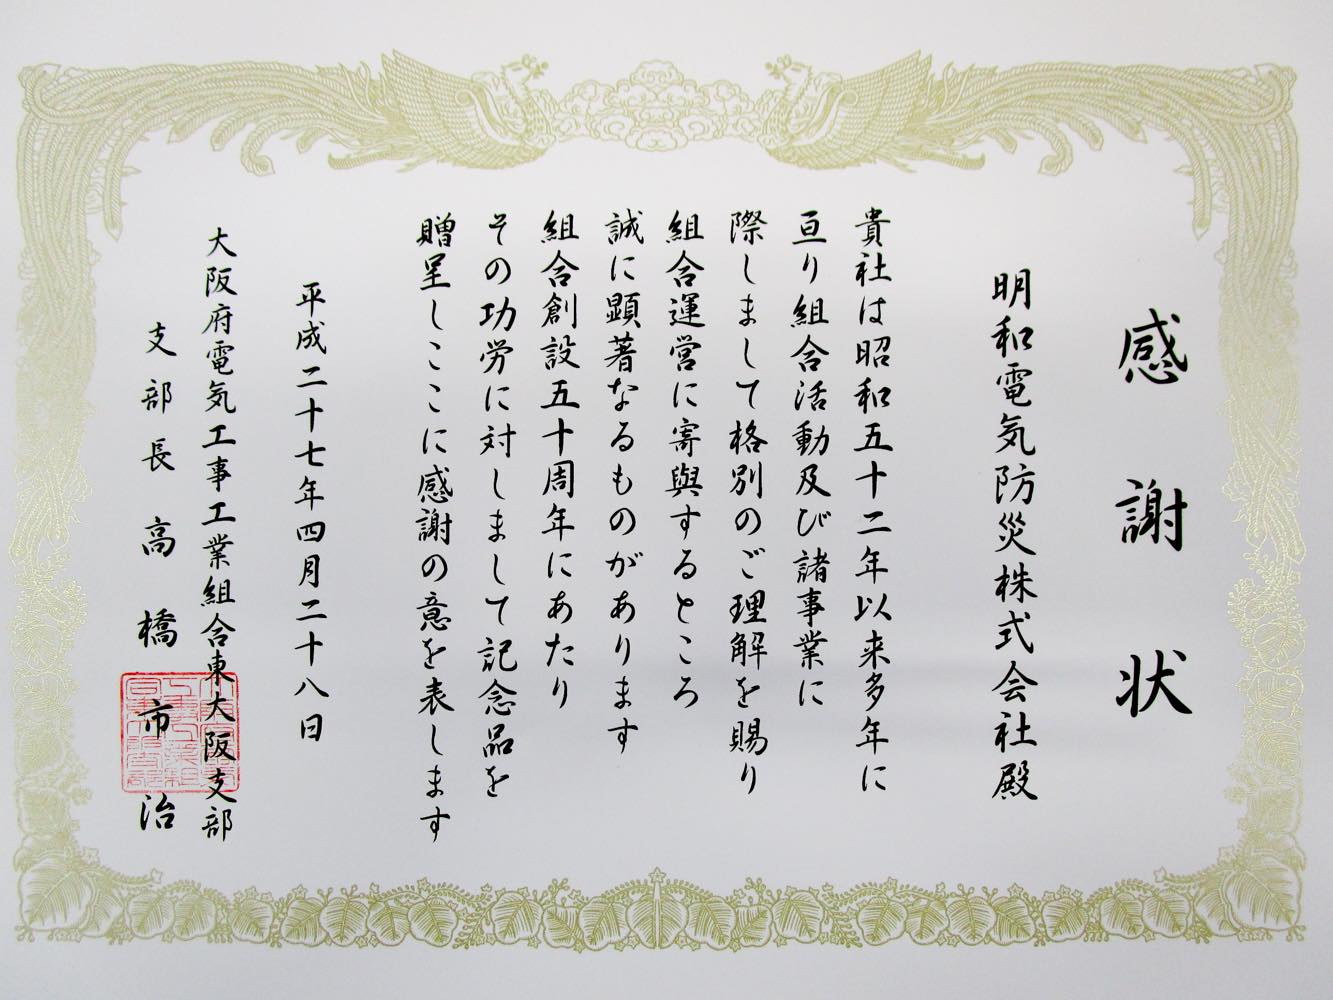 感謝状
明和電気防災株式会社殿
貴社は昭和五十二年以来多年に
亘り組合活動及び諸事業に
際しまして格別のご理解を賜り
組合運営に寄與するところ
誠に顕著なるものがあります
組合創設五十周年にあたり
その功労に対しまして記念品を
贈呈しここに感謝の意を表します
平成二十七年四月二十八日
大阪府電気工事工業組合東大阪支部
支部長高橋市治